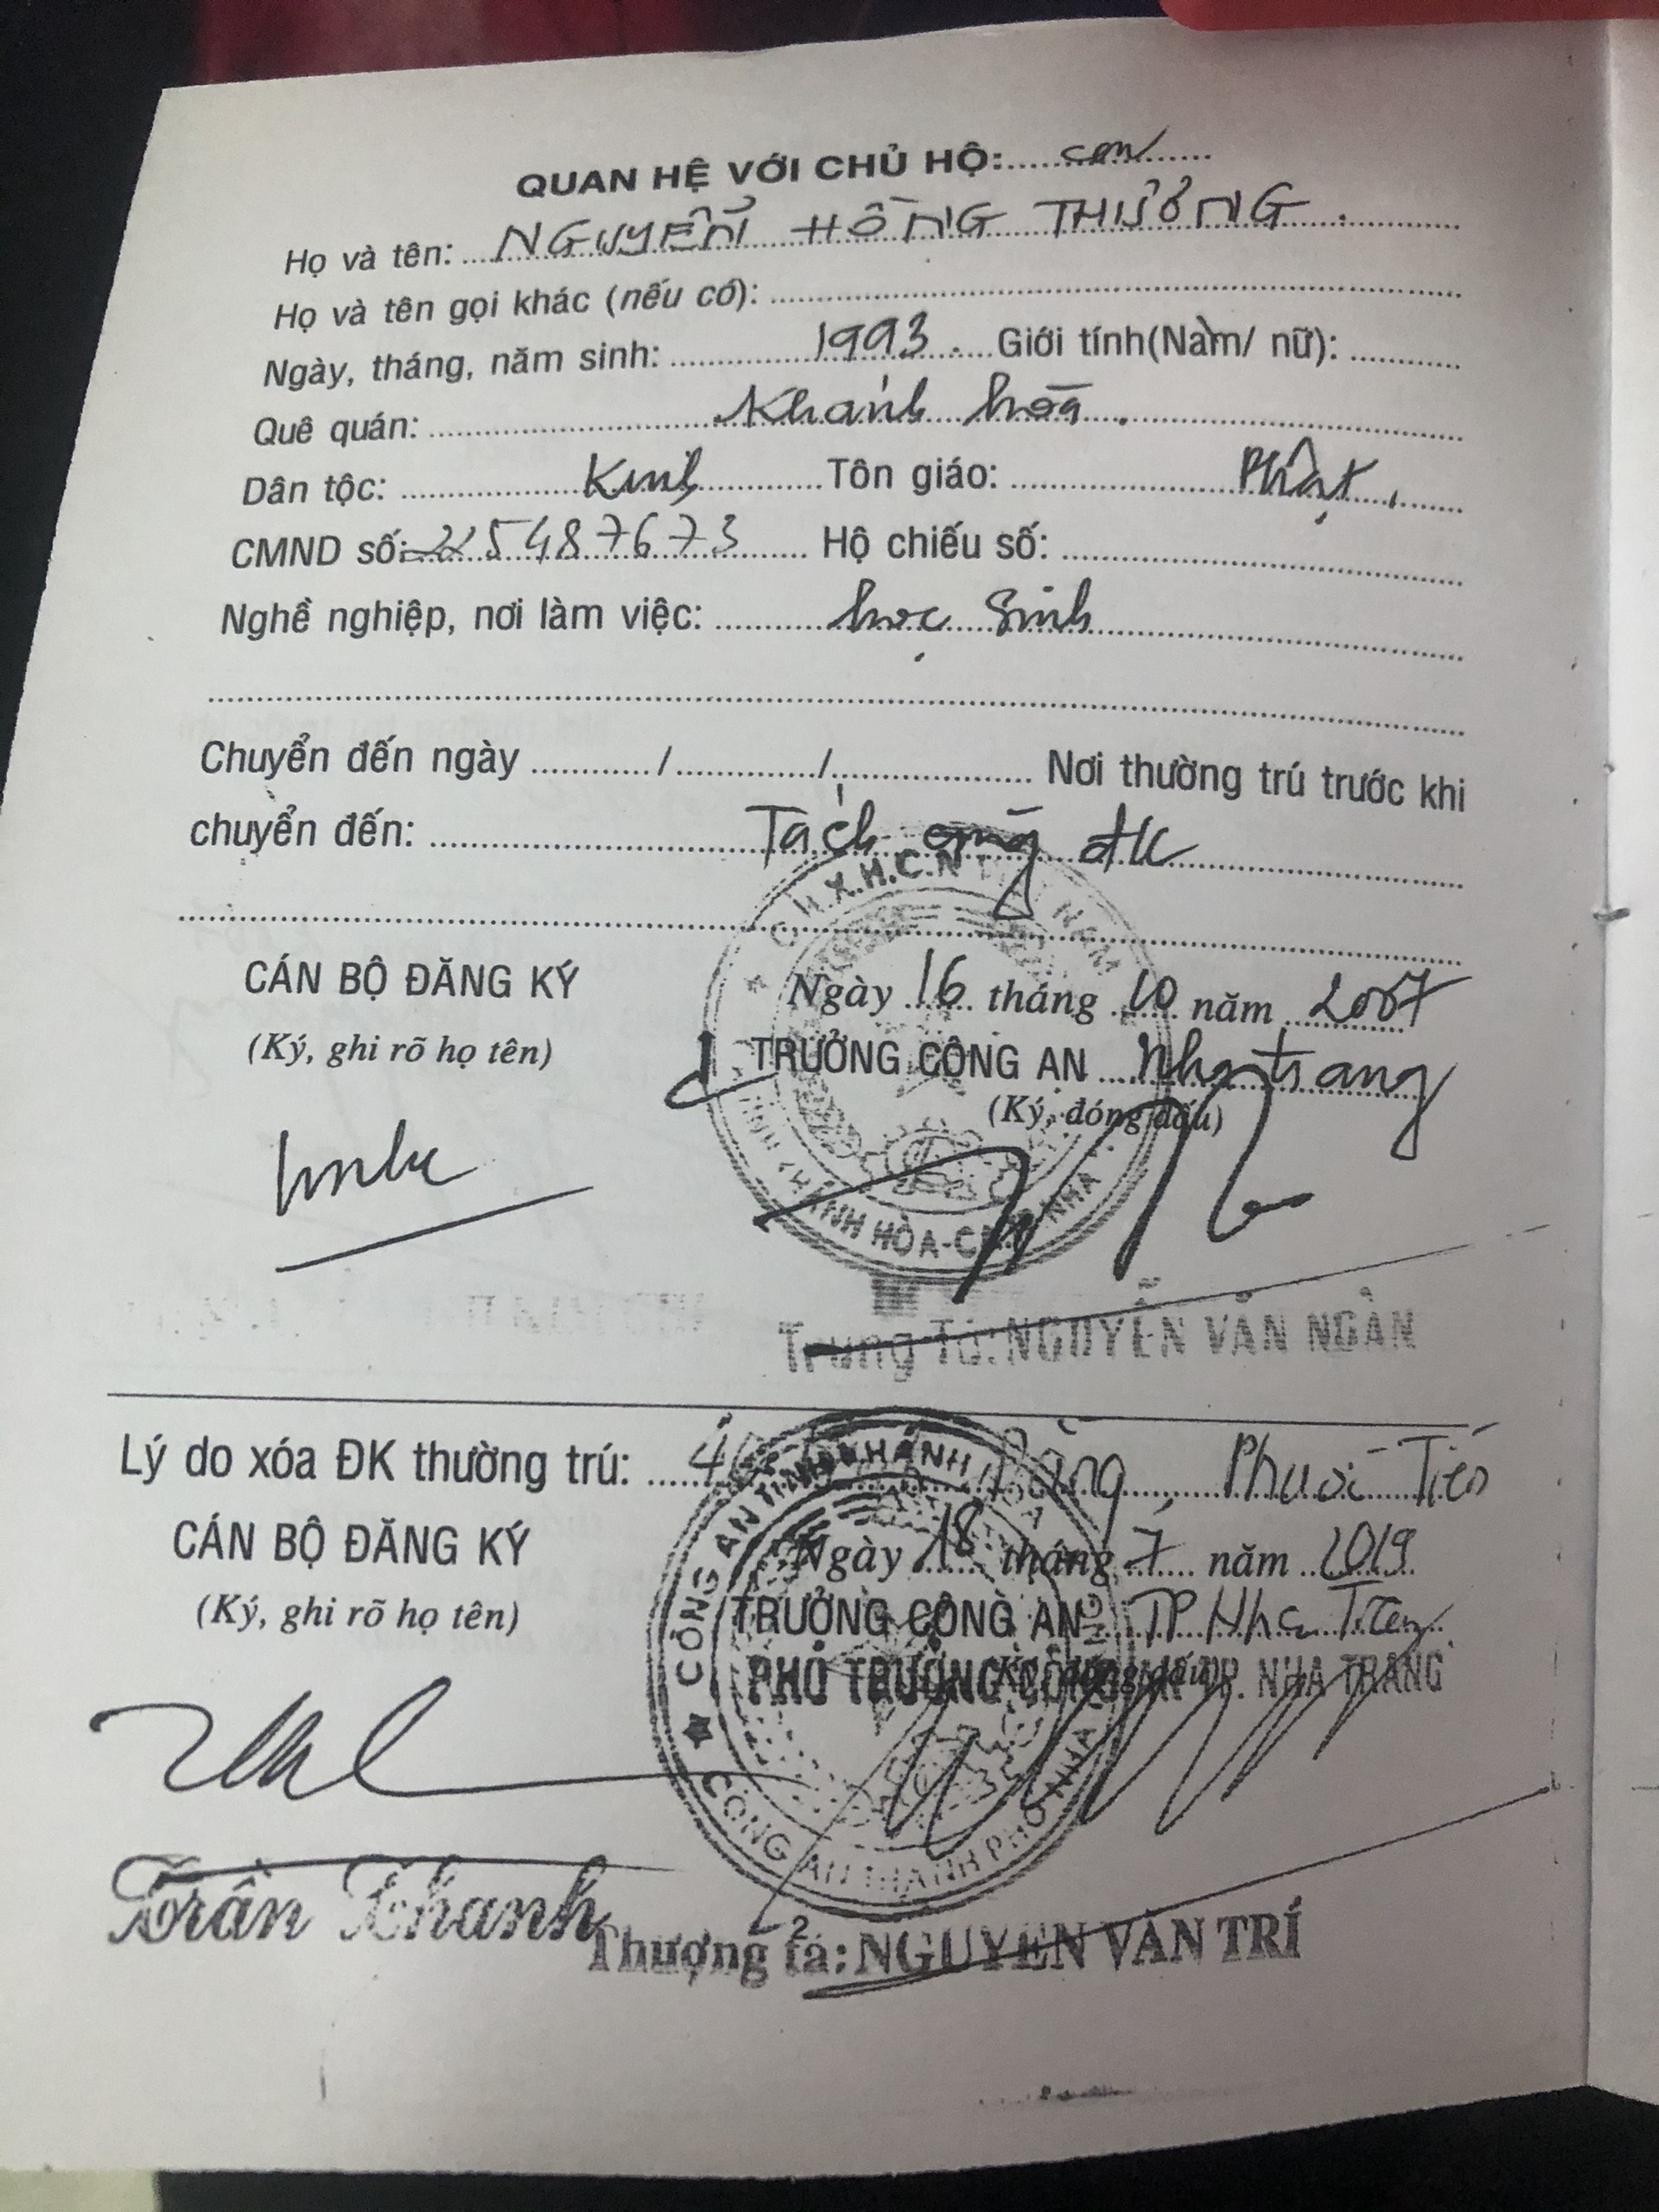 QUAN HỆ VỚI CHỦ HỘ: con
Họ và tên: NGUYỄN HỒNG THƯƠNG.
Họ và tên gọi khác (nếu có):
Ngày, tháng, năm sinh: 1993. Giới tính(Nam/ nữ):
Quê quán: Khánh hòa.
Dân tộc: Kinh Tôn giáo: Phật,
CMND số: 225487673 Hộ chiếu số:
Nghề nghiệp, nơi làm việc: học sinh
Chuyển đến ngày ............/............../.................... Nơi thường trú trước khi
chuyển đến: Tách cùng đk
C.H.X.H.C.N VIỆT NAM
CÁN BỘ ĐĂNG KÝ
Ngày 16 tháng 10 năm 2007
(Ký, ghi rõ họ tên)
TRƯỞNG CÔNG AN Nha trang
(Ký, đóng dấu)
Trung Tá: NGUYỄN VĂN NGÀN
Lý do xóa ĐK thường trú: Phước Tiến
CÁN BỘ ĐĂNG KÝ
Ngày 18 tháng 7 năm 2019
(Ký, ghi rõ họ tên)
TRƯỞNG CÔNG AN TP Nha Trang
(Ký, đóng dấu)
PHÓ TRƯỞNG CÔNG AN TP. NHA TRANG
CÔNG AN TỈNH KHÁNH HÒA
CÔNG AN THÀNH PHỐ NHA TRANG
Trần Khanh
Thượng tá: NGUYỄN VĂN TRÍ
2